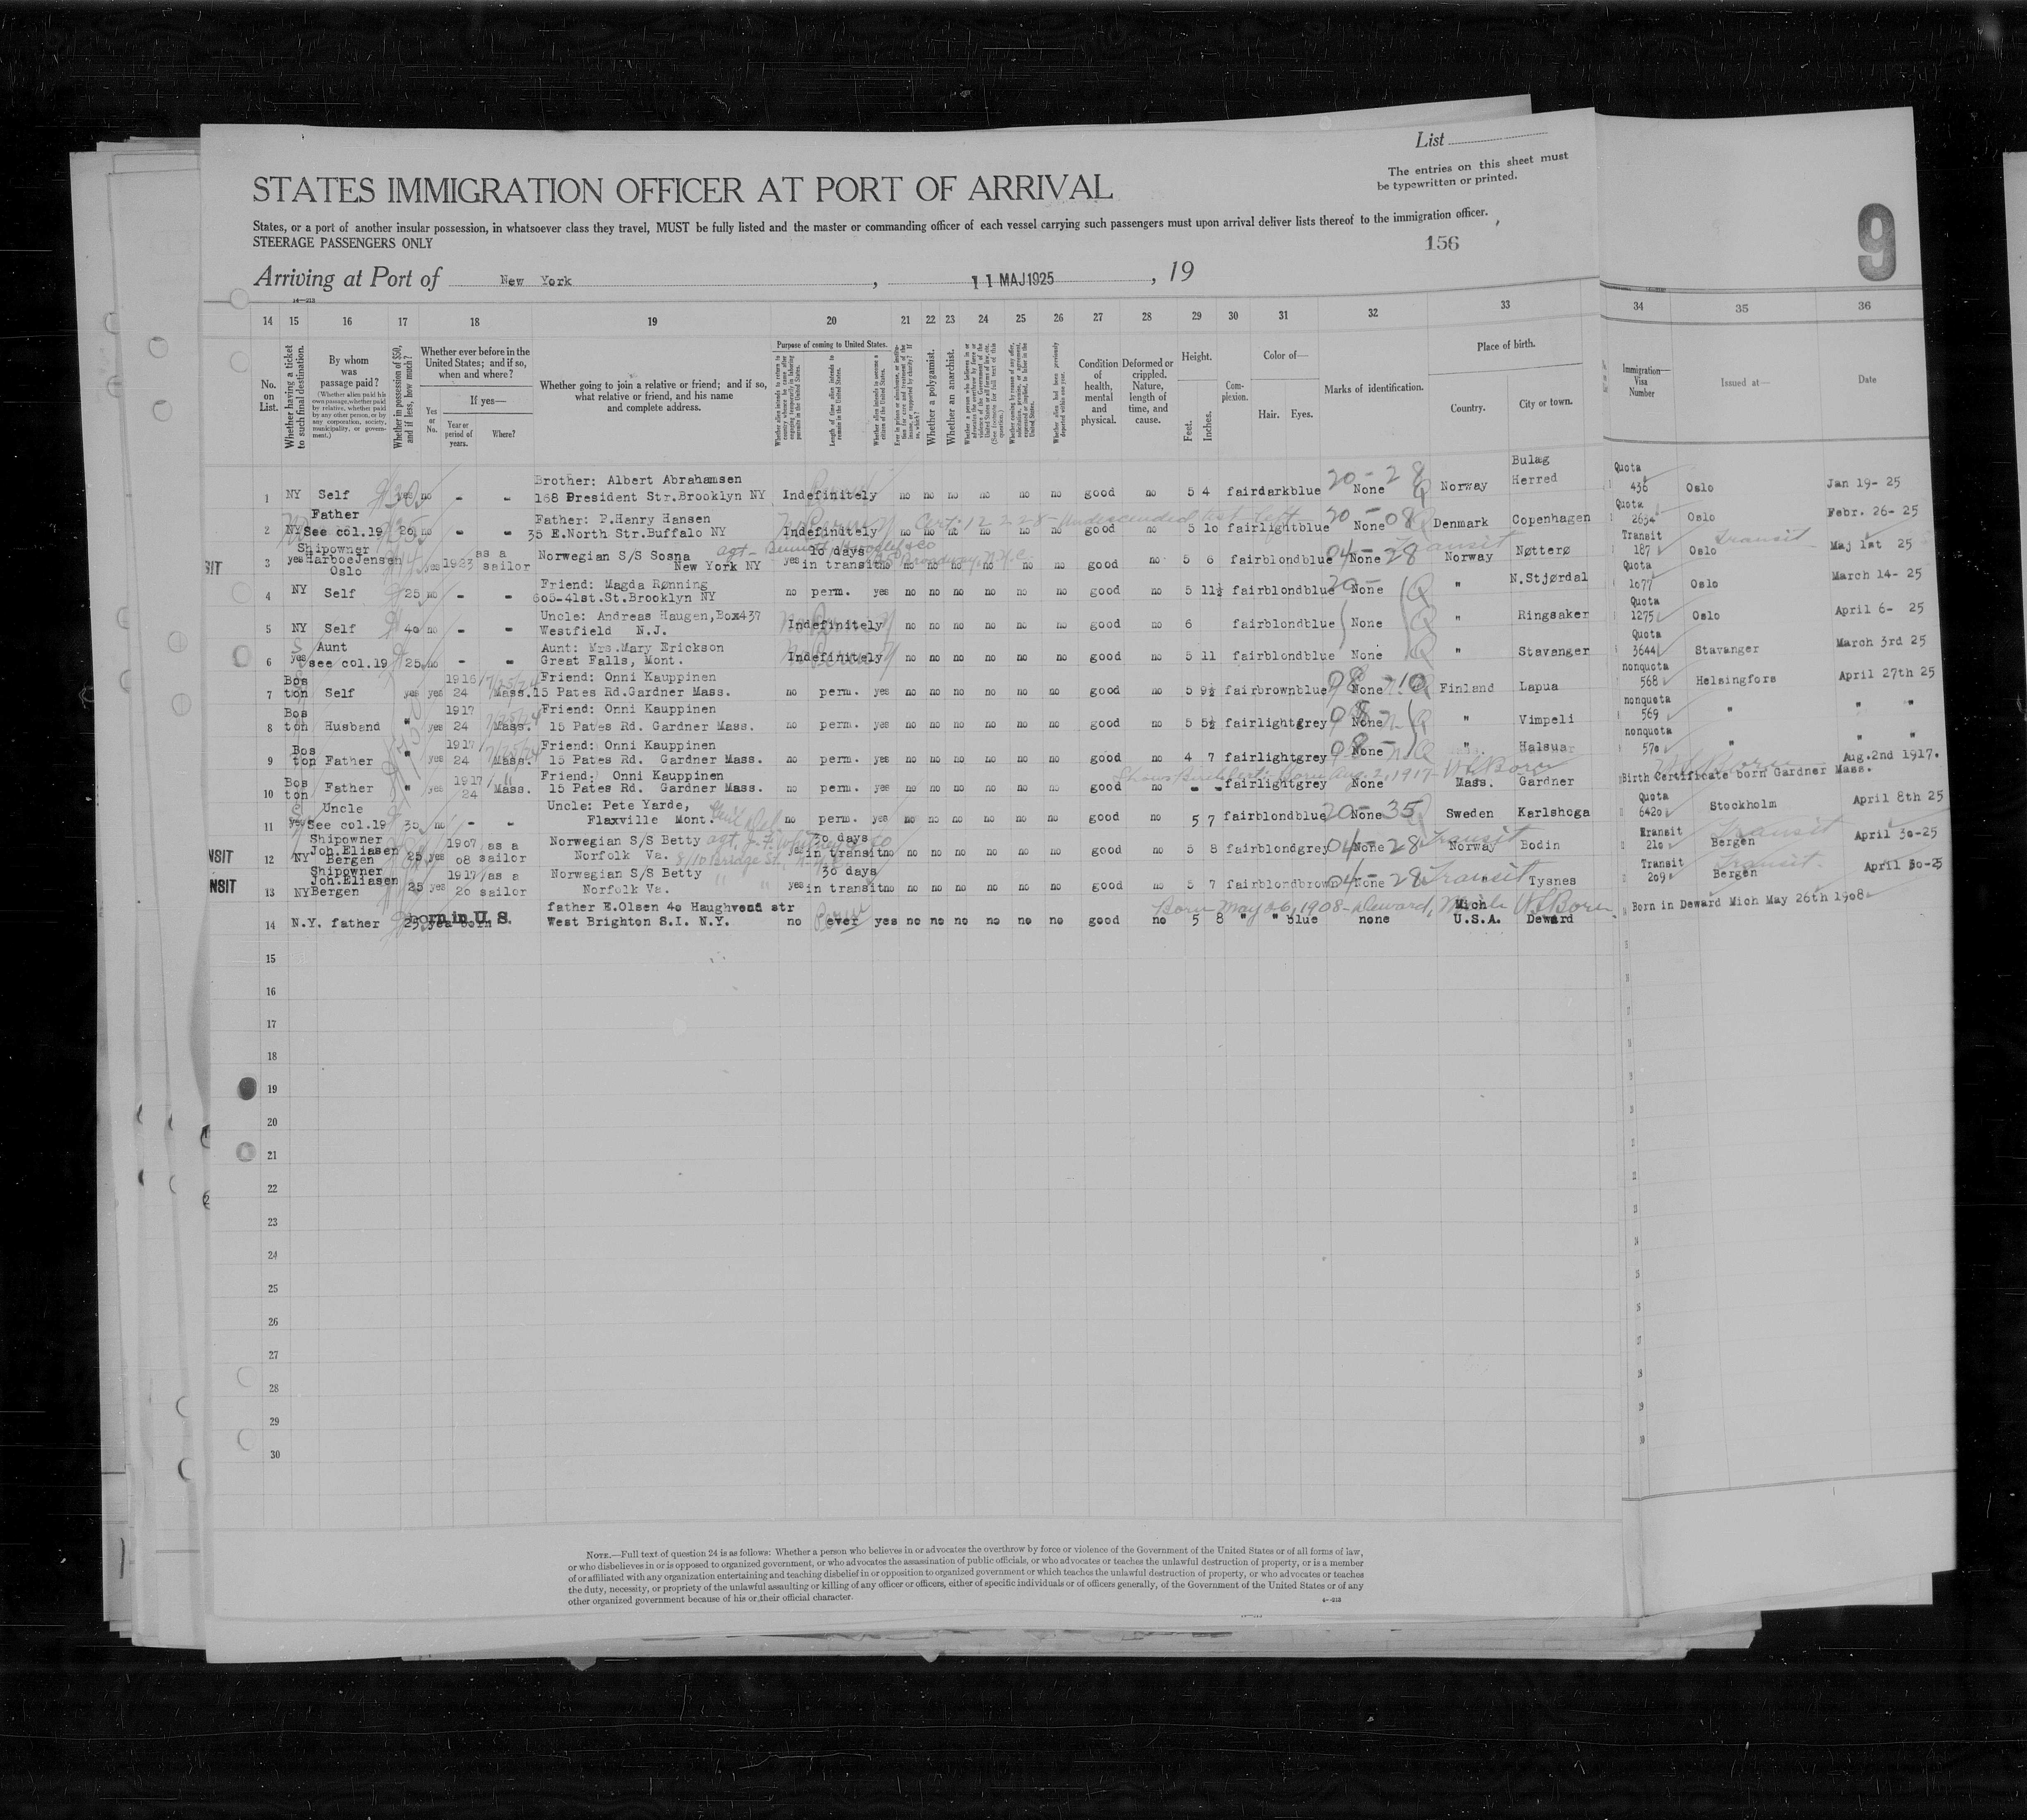 List
The entries on this sheet must
be typewritten or printed.
STATES IMMIGRATION OFFICER AT PORT OF ARRIVAL
States, or a port of another insular possession, in whatsoever class they travel, MUST be fully listed and the master or commanding officer of each vessel carrying such passengers must upon arrival deliver lists thereof to the immigration officer.
STEERAGE PASSENGERS ONLY
156
9
Arriving at Port of New York , 11 MAJ 1925 , 19
14 15 16 17 18 19 20 21 22 23 24 25 26 27 28 29 30 31 32 33 34 35 36
No. on List.
Whether having a ticket to such final destination.
By whom was passage paid?
(Whether alien paid his own passage, whether paid by relative, whether paid by any other person, or by any corporation, society, municipality, or government.)
Whether in possession of $50, and if less, how much?
Whether ever before in the United States; and if so, when and where?
Yes or No.
If yes—
Year or period of years.
Where?
Whether going to join a relative or friend; and if so, what relative or friend, and his name and complete address.
Purpose of coming to United States.
Length of time alien intends to remain in the United States.
Whether a polygamist.
Whether an anarchist.
Condition of health, mental and physical.
Deformed or crippled. Nature, length of time, and cause.
Height.
Feet. Inches.
Complexion.
Color of—
Hair. Eyes.
Marks of identification.
Place of birth.
Country. City or town.
Immigration Visa Number
Issued at—
Date
Brother: Albert Abrahamsen Bulag Quota
1 NY Self yes no - - 168 President Str.Brooklyn NY Indefinitely no no no no no no good no 5 4 fair dark blue None Norway Herred 436 Oslo Jan 19- 25
Father Father: P.Henry Hansen Quota
2 NY See col.19 20 no - - 35 E.North Str.Buffalo NY Indefinitely no no no no no no good no 5 10 fair light blue None Denmark Copenhagen 2654 Oslo Febr. 26- 25
Shipowner as a Norwegian S/S Sosna 10 days Transit
3 yes Harboe Jensen Oslo yes 1923 sailor New York NY yes in transit no no no no no no no good no 5 6 fair blond blue None Norway Nøtterø 187 Oslo Maj 1st 25
Friend: Magda Rønning Quota
4 NY Self 25 no - - 605-41st.St.Brooklyn NY no perm. yes no no no no no no good no 5 11½ fair blond blue None " N.Stjørdal 1077 Oslo March 14- 25
Uncle: Andreas Haugen,Box437 Quota
5 NY Self 40 no - - Westfield N.J. Indefinitely no no no no no no good no 6 fair blond blue None " Ringsaker 1275 Oslo April 6- 25
Aunt Aunt: Mrs.Mary Erickson Quota
6 yes see col.19 25 no - - Great Falls, Mont. Indefinitely no no no no no no good no 5 11 fair blond blue None " Stavanger 3644 Stavanger March 3rd 25
Bos 1916 Friend: Onni Kauppinen nonquota
7 ton Self yes yes 24 Mass. 15 Pates Rd.Gardner Mass. no perm. yes no no no no no no good no 5 9½ fair brown blue None Finland Lapua 568 Helsingfors April 27th 25
Bos 1917 Friend: Onni Kauppinen nonquota
8 ton Husband " yes 24 Mass. 15 Pates Rd. Gardner Mass. no perm. yes no no no no no no good no 5 5½ fair light grey None " Vimpeli 569 " " "
Bos 1917 Friend: Onni Kauppinen nonquota
9 ton Father " yes 24 Mass. 15 Pates Rd. Gardner Mass. no perm. yes no no no no no no good no 4 7 fair light grey None " Halsua 570 " " "
Bos 1917 Friend: Onni Kauppinen Shows Birth Cert: Born Aug. 2, 1917 - US Born Aug.2nd 1917.
10 ton Father " yes 24 Mass. 15 Pates Rd. Gardner Mass. no perm. yes no no no no no no good no - - fair light grey None Mass. Gardner Birth Certificate born Gardner Mass.
Uncle Uncle: Pete Yarde, Quota
11 yes See col.19 35 no - - Flaxville Mont. no perm. yes no no no no no no good no 5 7 fair blond blue None Sweden Karlshoga 6420 Stockholm April 8th 25
Shipowner 1907 as a Norwegian S/S Betty 30 days Transit
NSIT 12 NY Joh.Eliasen Bergen 25 yes 08 sailor Norfolk Va. yes in transit no no no no no no no good no 5 8 fair blond grey None Norway Bodin 210 Bergen April 30-25
Shipowner 1917 as a Norwegian S/S Betty 30 days Transit
NSIT 13 NY Joh.Eliasen Bergen 25 yes 20 sailor Norfolk Va. yes in transit no no no no no no no good no 5 7 fair blond brown None " Tysnes 209 Bergen April 30-25
born in U. S. father E.Olsen 40 Haughvend str Born May 26, 1908 - Deward, Mich US Born Mich
14 N.Y. father 25 yea born West Brighton S.I. N.Y. no ever yes no no no no no no good no 5 8 " " blue none U.S.A. Deward Born in Deward Mich May 26th 1908
15
16
17
18
19
20
21
22
23
24
25
26
27
28
29
30
NOTE.—Full text of question 24 is as follows: Whether a person who believes in or advocates the overthrow by force or violence of the Government of the United States or of all forms of law,
or who disbelieves in or is opposed to organized government, or who advocates the assassination of public officials, or who advocates or teaches the unlawful destruction of property, or is a member
of or affiliated with any organization entertaining and teaching disbelief in or opposition to organized government or which teaches the unlawful destruction of property, or who advocates or teaches
the duty, necessity, or propriety of the unlawful assaulting or killing of any officer or officers, either of specific individuals or of officers generally, of the Government of the United States or of any
other organized government because of his or their official character.